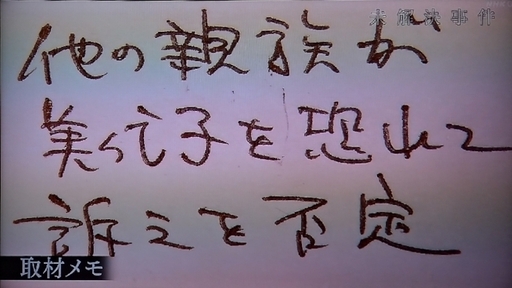 未解決事件
他の親族が
美代子を恐れて
訴えを否定
取材メモ